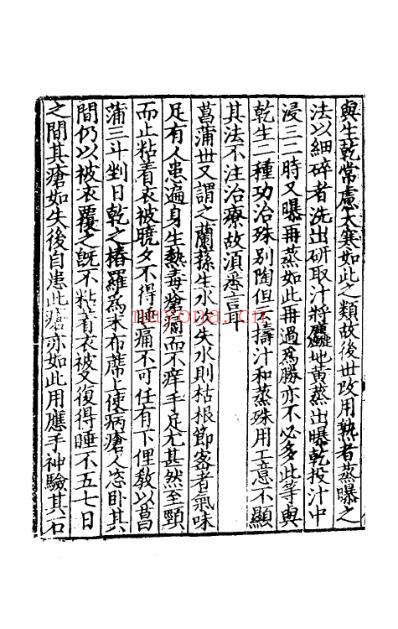 與生乾常慮大寒如此之類故後世改用熟者蒸曝之
法以細碎者洗出研取汁將麤地黃蒸出曝乾投汁中
浸三二時又曝再蒸如此再過爲勝亦不必多此等與
乾生二種功治殊別陶但云擣汁和蒸殊用工意不顯
其法不注治療故湏悉言耳
菖蒲世又謂之蘭蓀生水次失水則枯根節密者氣味
足有人患遍身生熱毒瘡痛而不痒手足尤甚然至頸
而止粘着衣被曉夕不得睡痛不可任有下俚教以菖
蒲三斗剉日乾之舂羅爲末布蓆上使病瘡人恣卧其
間仍以被衣覆之旣不粘着衣被又復得睡不五七日
之間其瘡如失後自患此瘡亦如此用應手神驗其石
nayona.cn